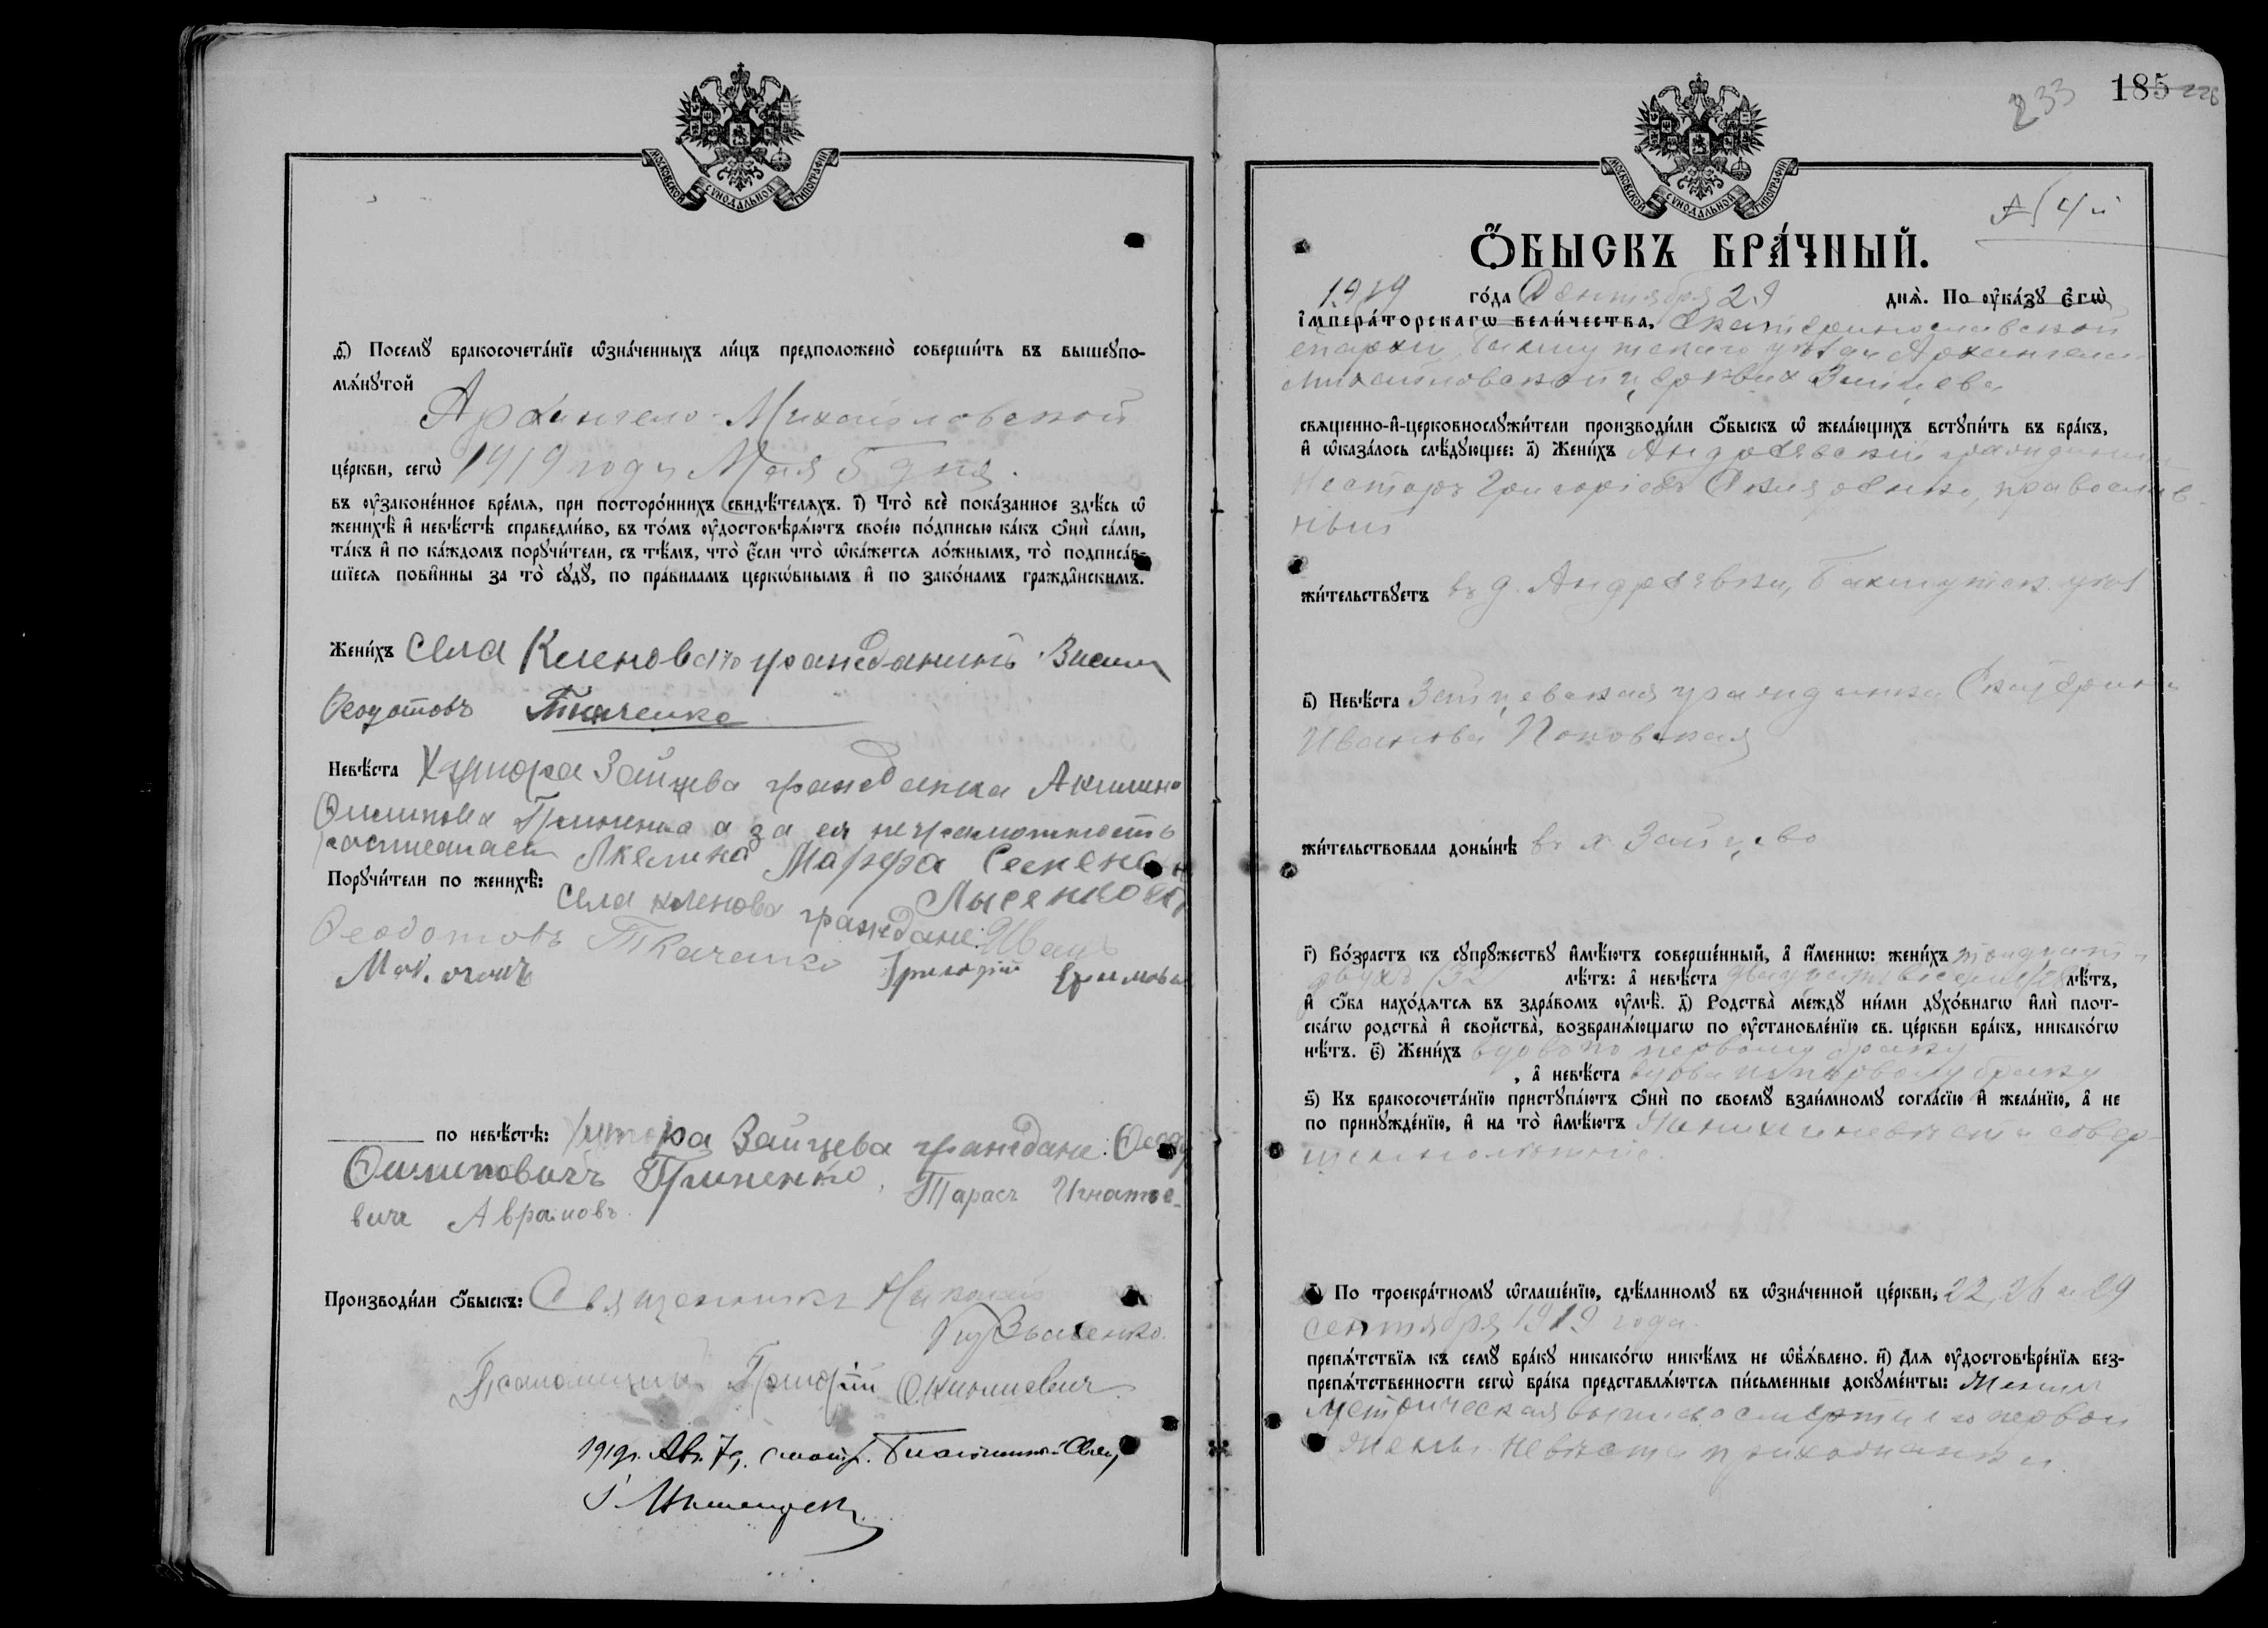 МОСКОВСКОЙ СУНОДАЛЬНОЙ ТИПОГРАФІИ
ѳ҃) Посемꙋ бракосочета́нїе ѡ҆зна́ченныхъ ли́цъ предположено̀ соверши́ть въ вышеупо-
мѧ́нꙋтой
Архангело-Михайловской
це́ркви, сегѡ̀ 1919 года Мая 5 дня.
въ ᲂу҆законе́нное вре́мѧ, при посторо́ннихъ свидѣ́телѧхъ. і҃) Что̀ всѐ пока́занное здѣ́сь ѡ҆
женихѣ̀ и҆ невѣ́стѣ справедли́во, въ то́мъ ᲂу҆достовѣрѧ́ютъ свое́ю по́дписью ка́къ ѻ҆нѝ са́ми,
та́къ и҆ по ка́ждомъ порꙋчи́тели, съ тѣ́мъ, что̀ є҆́сли что̀ ѡ҆ка́жетсѧ ло́жнымъ, то̀ подписа́в-
шїесѧ пови́нны за то̀ сꙋдꙋ̀, по пра́виламъ церкѡ́внымъ и҆ по зако́намъ гражда́нскимъ.
Жени́хъ села Кленоваго гражданинъ
Ѳеодотовъ Ткаченко
Невѣ́ста Хутора Зайцева гражданка Акилина
а за ея неграмотность
Акелина Марфа Семенов
Лысенкова
Порꙋчи́тели по женихѣ̀: села Кленова граждане: Иванъ
Ѳеодотовъ Ткаченко Григорій
по невѣ́стѣ: хутора Зайцева граждане:
Ѳилиповичъ Гриненко, Тарасъ Игнатье-
вичъ Аврамовъ.
Производи́ли ѻ҆́быскъ: Священникъ Николай
Псаломщикъ Григорій
1919 г. Авг. 7 д.
МОСКОВСКОЙ СУНОДАЛЬНОЙ ТИПОГРАФІИ
233 185 226
Ѻ҆́БЫСКЪ БРА́ЧНЫЙ.
1919 го́да Сентября 29 днѧ̀. По ᲂу҆ка́зꙋ Є҆гѡ̀
І҆мпера́торскагѡ вели́чества, Екатеринославской
епархіи, Бахмутскаго уѣзда Архангело-
Михайловской церкви х Зайцева
свѧщенно-и҆-церковнослꙋжи́тели производи́ли ѻ҆́быскъ ѡ҆ жела́ющихъ встꙋпи́ть въ бра́къ,
и҆ ѡ҆каза́лось слѣ́дꙋющее: а҃) Жени́хъ Андреевскій гражданинъ
Несторъ Григоріевъ православ-
ный
жи́тельствꙋетъ въ д. Андреевки, Бахмутск. уѣз
в҃) Невѣ́ста Зайцевская гражданка Екатерина
Иванова Поповская
жи́тельствовала доны́нѣ въ х Зайцево
г҃) Во́зрастъ къ сꙋпрꙋ́жествꙋ и҆мѣ́ютъ соверше́нный, а҆ и҆́менно: жени́хъ тридцати
двухъ (32) лѣ́тъ: а҆ невѣ́ста двадцати восьми (28) лѣ́тъ,
и҆ ѻ҆́ба нахо́дѧтсѧ въ здра́вомъ ᲂу҆мѣ̀. д҃) Родства̀ ме́ждꙋ ни́ми дꙋхо́внагѡ и҆лѝ плот-
ска́гѡ родства̀ и҆ свойства̀, возбранѧ́ющагѡ по ᲂу҆становле́нїю св. це́ркви бра́къ, никако́гѡ
нѣ́тъ. є҃) Жени́хъ вдовъ по первому браку
, а҆ невѣ́ста вдова по первому браку
ѕ҃) Къ бракосочета́нїю пристꙋпа́ютъ ѻ҆нѝ по своемꙋ̀ взаи́мномꙋ согла́сїю и҆ жела́нїю, а҆ не
по принꙋжде́нїю, и҆ на то̀ и҆мѣ́ютъ Женихъ и невѣста совер-
шеннолѣтніе.
з҃) По троекра́тномꙋ ѡ҆глаше́нїю, сдѣ́ланномꙋ въ ѡ҆зна́ченной це́ркви, 22, 26 и 29
сентября 1919 года.
препѧ́тствїѧ къ семꙋ̀ бра́кꙋ никако́гѡ никѣ́мъ не ѡ҆б̾ѧ́влено. и҃) Длѧ̀ ᲂу҆достовѣре́нїѧ без-
препѧ́тственности сегѡ̀ бра́ка представлѧ́ютсѧ пи́сьменные докꙋме́нты: Жениха
Метрическая выпись о смерти его первой
жены. Невѣста прихожанка.